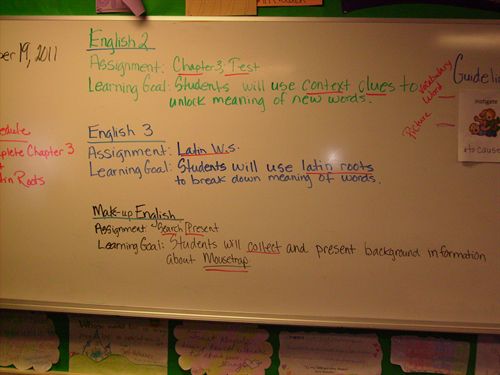 19, 2011
English 2
Assignment: Chapter 3; Test
Learning Goal: Students will use context clues to
unlock meaning of new words.
English 3
Assignment: Latin W.S.
Learning Goal: Students will use latin roots
to break down meaning of words.
Make-up English
Assignment: Search/Present
Learning Goal: Students will collect and present background information
about Mousetrap
Chapter 3
Roots
Vocabulary
Word
Picture
Guideli
instigate
to cause